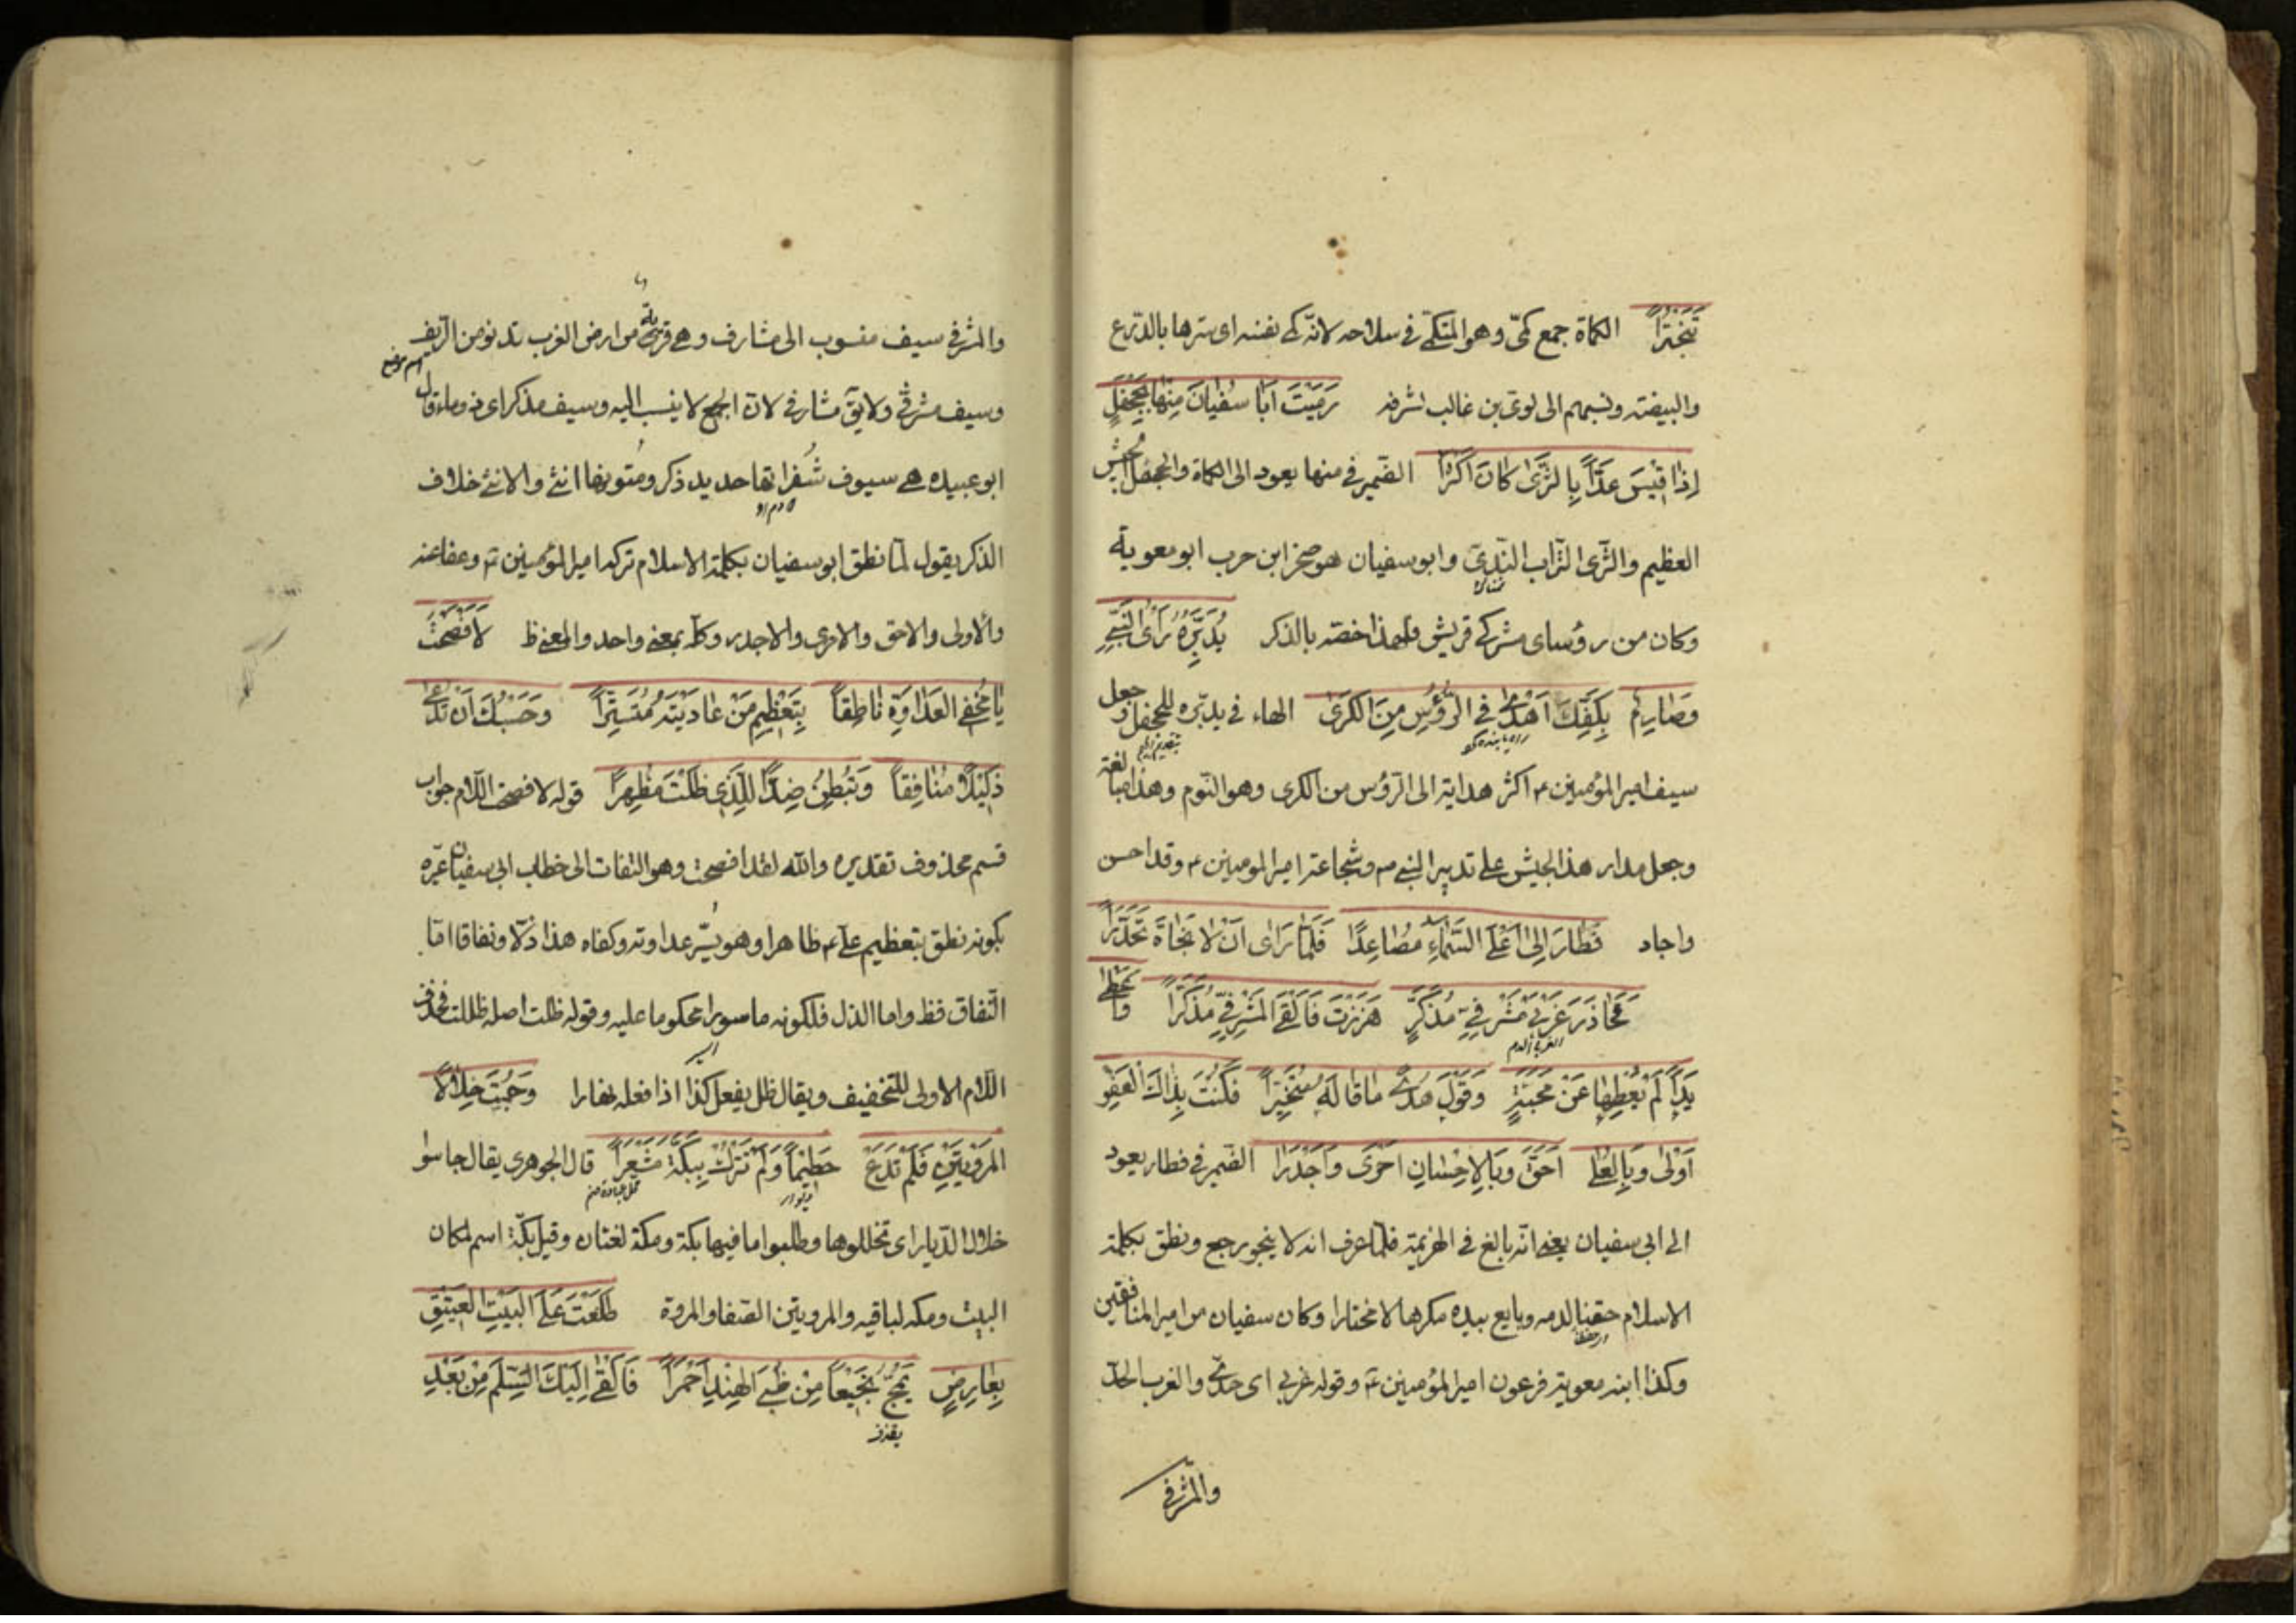 تَبَخْتُرًا الكماة جمع كمىّ وهو المتكمّى فى سلاحه لانّه كمى نفسه اى سترها بالدّرع
والبيضة ونسبهم الى لوىّ بن غالب لشرفه رَمَيْتَ اَبَا سُفْيَانَ مِنْهَا بِجَحْفَلٍ
اِذَا قِيْسَ عَدًّا بِالثَّرَى كَانَ اَكْثَرَا الضّمير فى منها يعود الى الكماة والجحفل الجيش
العظيم والثّرى التراب النّدىّ وابو سفيان هو صخر ابن حرب ابو معوية
وكان من رؤساى مشركى قريش ولهذا خصّه بالذكر يُدَبِّرُهُ رَأْىُ النَّبِىِّ
وَصَارِمٌ بِكَفِّكَ اَهْدٰى فِى الرُّؤُسِ مِنَ الكَرَى الهاء فى يدبّره للجحفل وجعل
سيف امير المؤمنين ع اكثر هداية الى الرّؤس من الكرى وهو النّوم وهذا مبالغة
وجعل مدار هذا الجيش على تدبير النبى ص وشجاعة امير المومنين ع وقد احسن
واجاد فَطَارَ اِلٰى اَعْلَى السَّمَاءِ مُصَاعِدًا فَلَمَّا رَاٰى اَنْ لَا نَجَاةَ تَحَدَّرَا
فَحَاذَرَ غَرْبَىْ مَشْرَفِىٍّ مُذَكَّرٍ هَزَزْتَ فَاَلْقَى المَشْرَفِىَّ مُذَكَّرًا وَاَعْطٰى
الغرب الدم
يَدًا لَمْ يُعْطِهَا عَنْ مَحَبَّةٍ وَقَوْلَ هُدًى مَا قَالَهُ مُتَخَيِّرًا فَكُنْتَ بِذَاكَ العَفْوِ
اَوْلٰى وَبِالعُلٰى اَحَقَّ وَبِالاِحْسَانِ اَحْرٰى وَاَجْدَرَا الضّمير فى فطار يعود
الى ابى سفيان يعنى انّه بالغ فى الهزيمة فلمّا عرف انه لا ينجو رجع ونطق بكلمة
الاسلام حقنا لدمه وبايع بيده مكرها لا مختارا وكان سفيان من امير المنافقين
وكذا ابنه معوية فرعون امير المؤمنين ع وقوله غربى اى حدّى والغرب الحدّ
والمشرفى
والمشرفى سيف منسوب الى مشارف وهى قرية من ارض العرب تدنو من الرّيف
وسيف مشرفى ولا يق مشارفى لان الجمع لا ينسب اليه وسيف مذكر اى ذو ماء قال
ابو عبيده هى سيوف شفراتها حديد ذكر ومتونها انثى والانثى خلاف
الذكر يقول لمّا نطق ابو سفيان بكلمة الاسلام تركه امير المؤمنين ع وعفا عنه
والاولى والاحق والاحرى والاجدر وكله بمعنى واحد والمعنى ظ لَاَفْصَحْتَ
يَا مُخْفِى العَدَاوَةِ نَاطِقًا بِتَعْظِيمِ مَنْ عَادَيْتَهُ مُتَسَتِّرًا وَحَسْبُكَ اَنْ تُدْعٰى
ذَلِيْلًا مُنَافِقًا وَتُبْطِنُ ضِدًّا لِلَّذِى ظَلْتَ مُظْهِرًا قوله لافصحت اللام جواب
قسم محذوف تقديره والله لقد افصحت وهو التفات الى خطاب ابى سفيان عيّره
بكونه نطق بتعظيم على ع ظاهرا وهو يسّر عداوته وكفاه هذا ذلّا ونفاقا امّا
النّفاق فظ واما الذل فلكونه ماسورا محكوما عليه وقوله ظلت اصله ظللت فحذف
اللام الاولى للتخفيف ويقال ظل يفعل كذا اذا فعله نهارا وَجُبْتَ خِلَالَ
المَرْوَتَيْنِ فَلَمْ تَدَعْ حَطِيمًا وَلَمْ تَتْرُكْ بِبَكَّةَ مَشْعَرًا قال الجوهرى يقال جاسوا
خلال الدّيار اى تخللوها وطلبوا ما فيها بكة ومكة لغتان وقيل بكّة اسم لمكان
البيت ومكه لباقيه والمروتين الصّفا والمروة طَلَعْتَ عَلَى البَيْتِ العَتِيْقِ
بِعَارِضٍ يَمُجُّ نَجِيْعًا مِنْ ظُبَى الهِنْدِ اَحْمَرَا فَاَلْقٰى اِلَيْكَ السِّلْمَ مِنْ بَعْدِ
يقذف